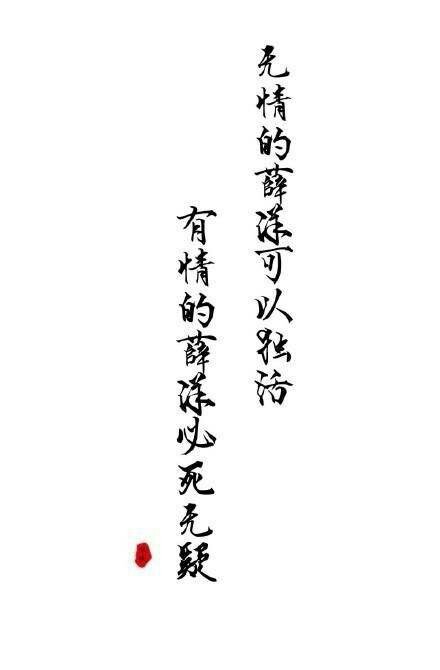 无情的薛洋可以独活
有情的薛洋必死无疑